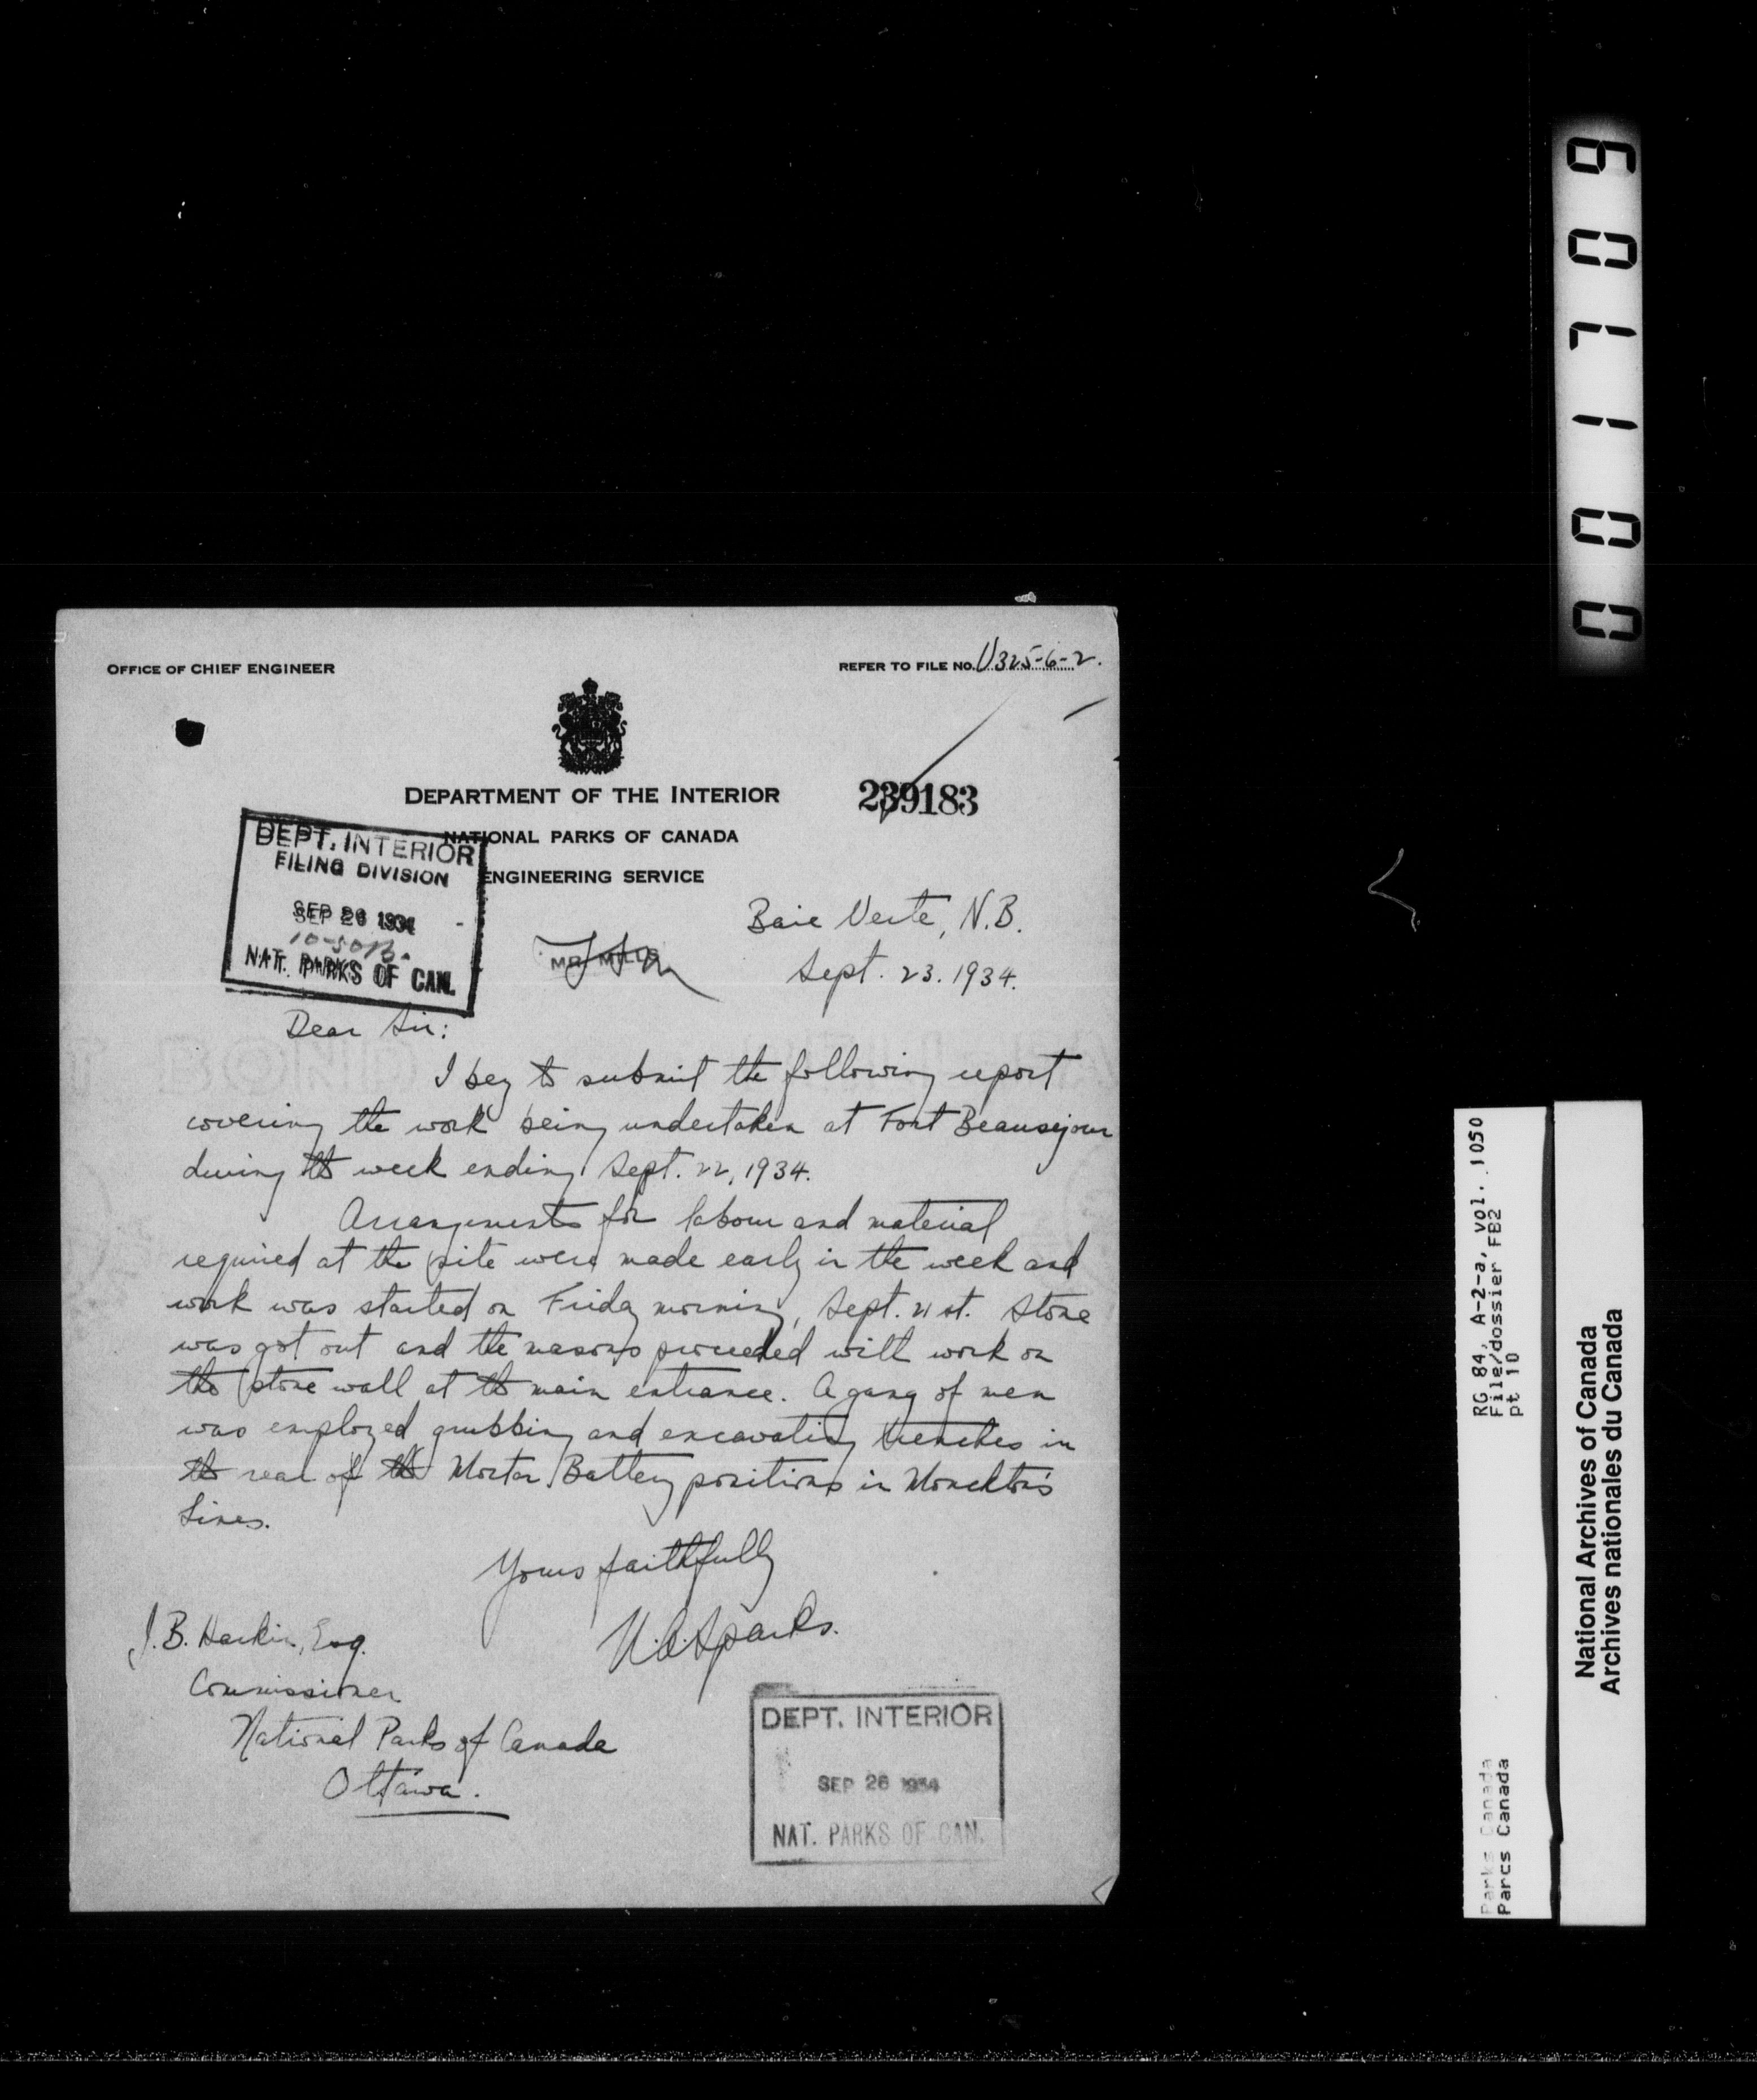 OFFICE OF CHIEF ENGINEER
REFER TO FILE NO. U325-6-2.
DEPARTMENT OF THE INTERIOR
239183
NATIONAL PARKS OF CANADA
ENGINEERING SERVICE
DEPT. INTERIOR
FILING DIVISION
SEP 26 1934
NAT. PARKS OF CAN.
MR. MILLS
Baie Verte, N.B.
Sept. 23. 1934.
Dear Sir:
I beg to submit the following report
covering the work being undertaken at Fort Beausejour
during the week ending Sept. 22, 1934.
Arrangements for labour and material
required at the site were made early in the week and
work was started on Friday morning, Sept. 21st. Stone
was got out and the masons proceeded with work on
the stone wall at the main entrance. A gang of men
was employed grubbing and excavating trenches in
the rear of the Mortar Battery positions in Monckton's
Lines.
Yours faithfully
Sparks.
J.B. Harkin, Esq.
Commissioner
National Parks of Canada
Ottawa.
DEPT. INTERIOR
SEP 26 1934
NAT. PARKS OF CAN.
001709
RG 84, A-2-a, vol. 1050
File/dossier FB2
pt 10
Parks Canada
Parcs Canada
National Archives of Canada
Archives nationales du Canada